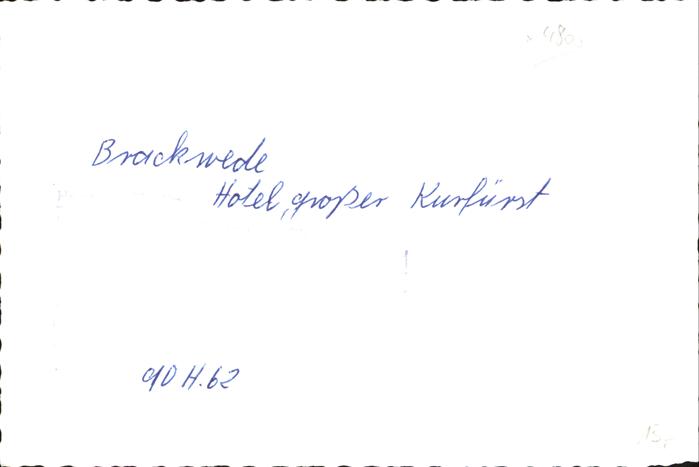 480,
Brackwede
Hotel „großer Kurfürst
90 H.62
15,-